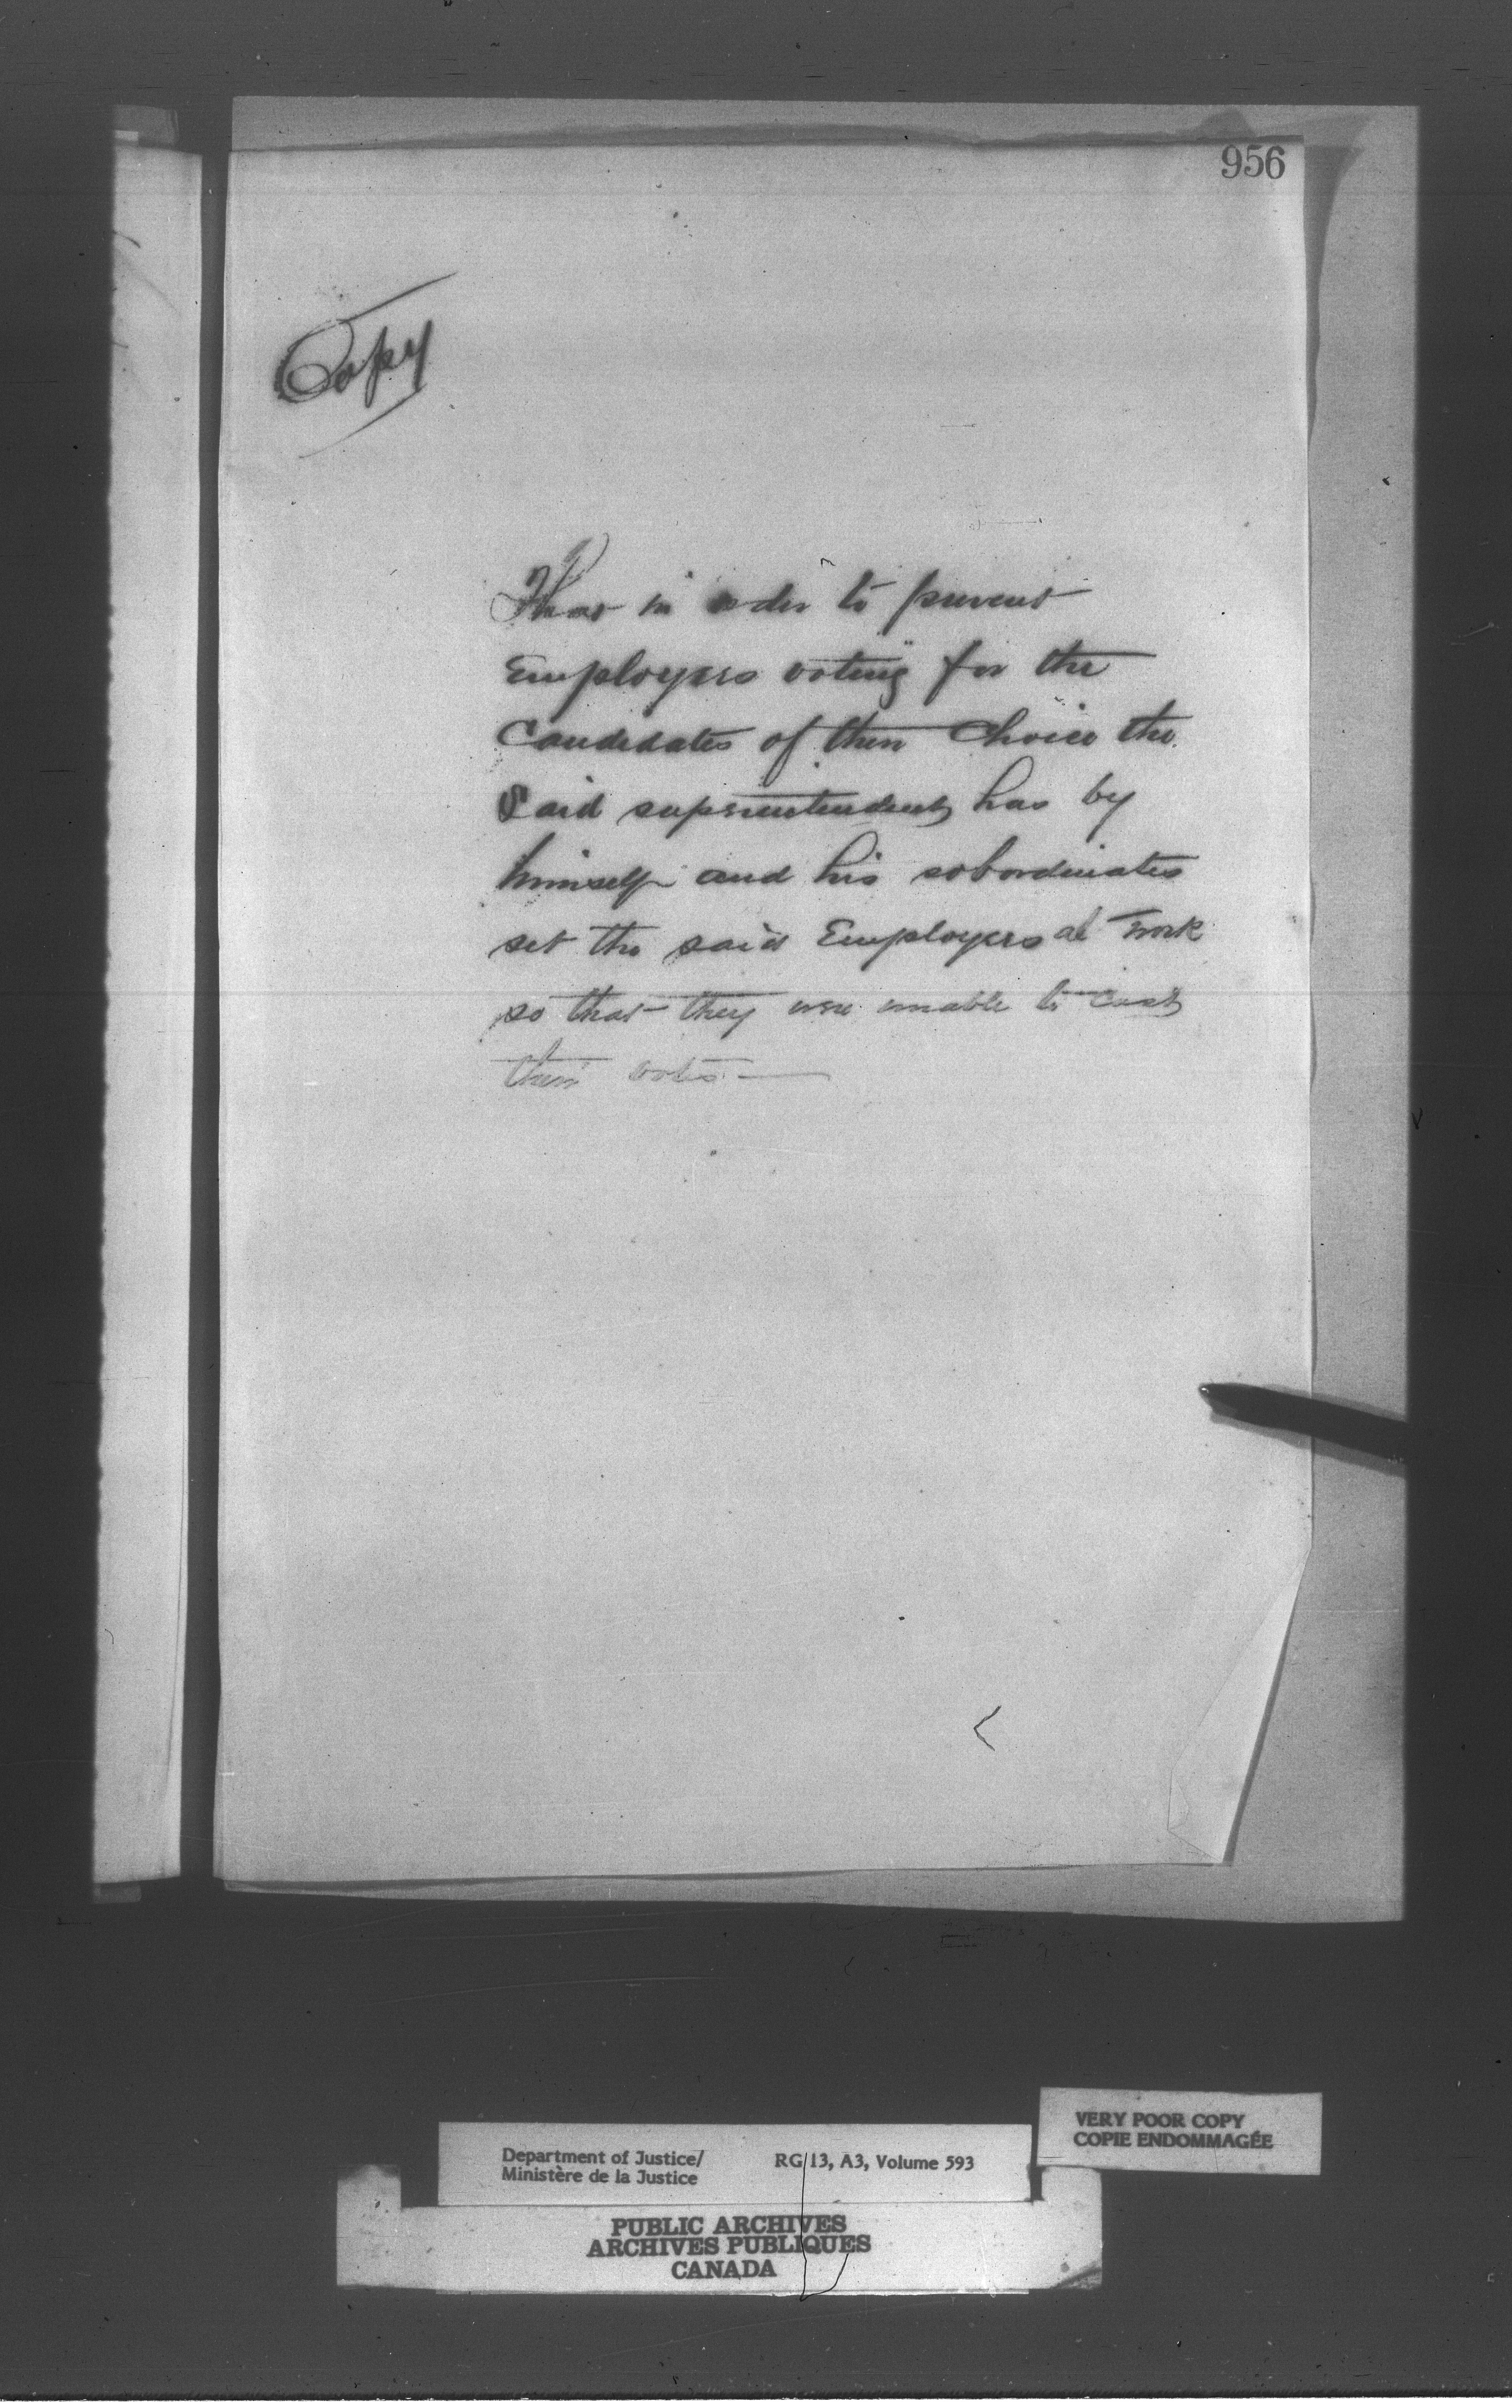 956
Copy
That in order to prevent
Employees voting for the
Candidates of their Choice the
Said superintendent has by
himself and his sobordinates
set the said Employees at work
so that they were unable to cast
their votes —
VERY POOR COPY
COPIE ENDOMMAGÉE
Department of Justice/ RG 13, A3, Volume 593
Ministère de la Justice
PUBLIC ARCHIVES
ARCHIVES PUBLIQUES
CANADA